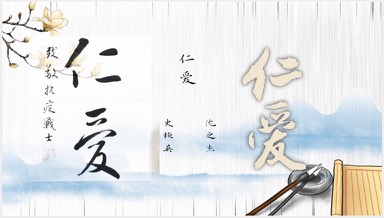 仁爱
致敬抗疫战士
仁爱
沈之杰
史桃英
仁爱